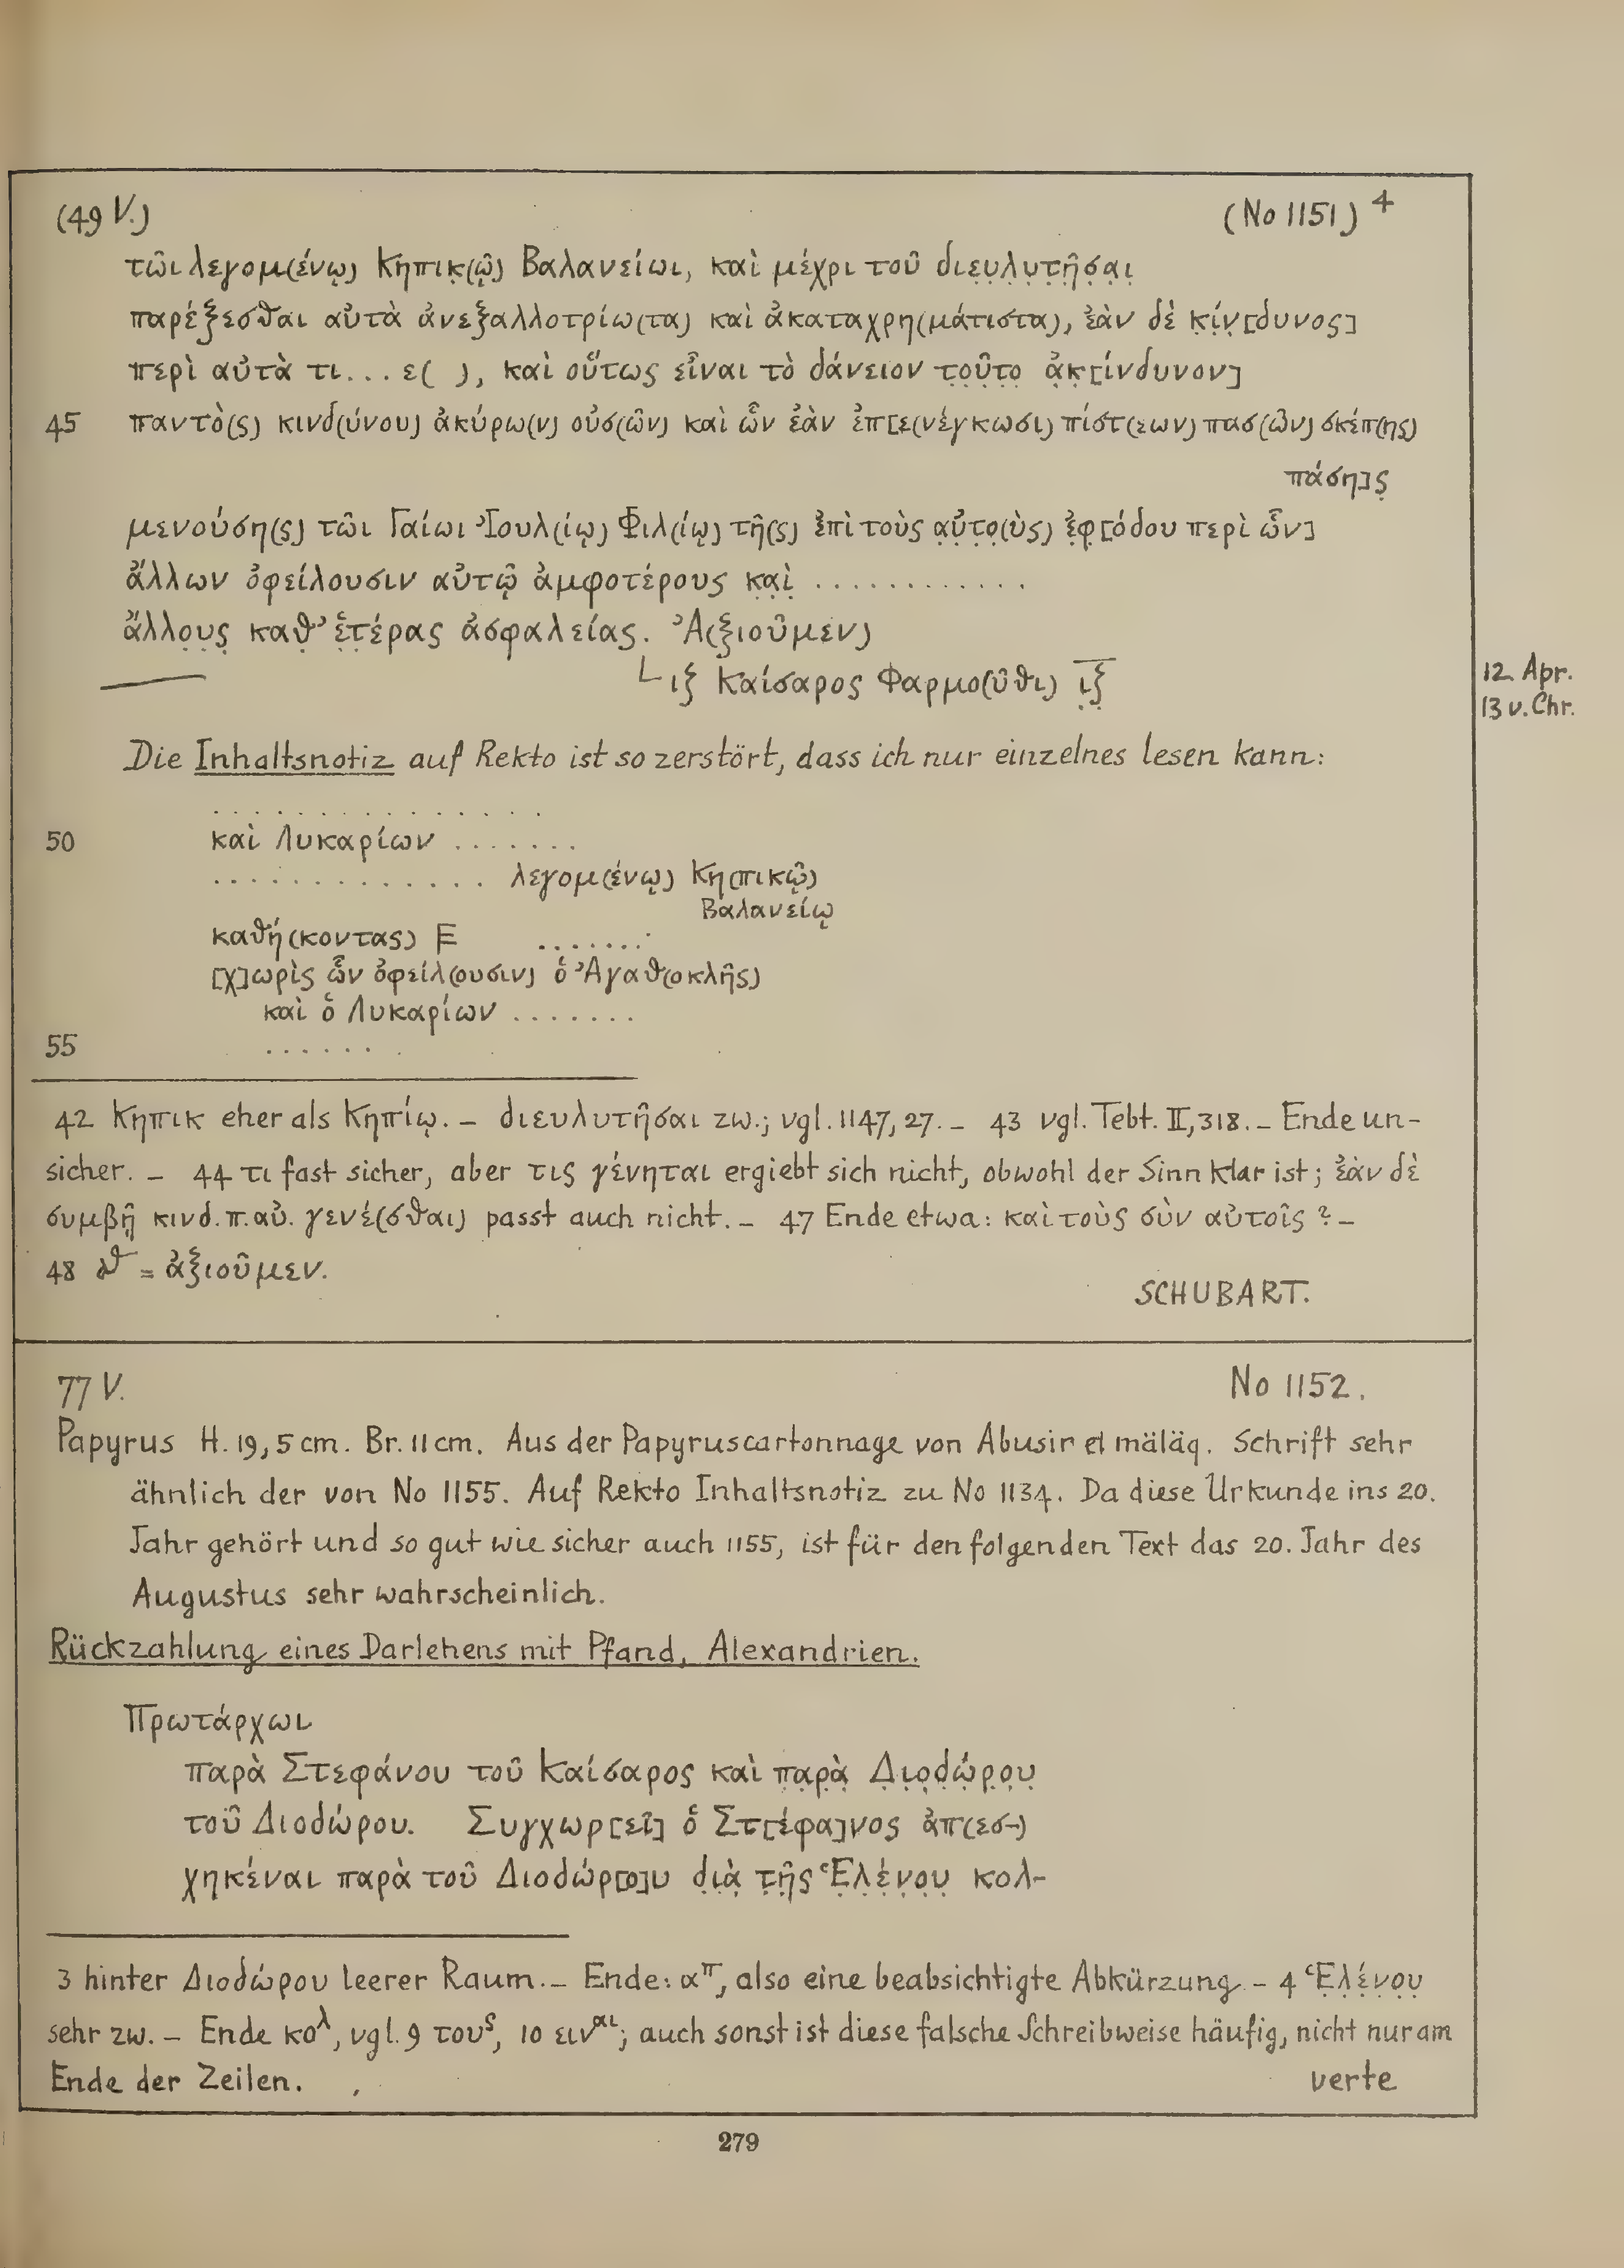 (49 V.) (No 1151) 4
τῶι λεγομ(ένῳ) Κηπικ̣(ῷ) Βαλανείωι, καὶ μέχρι τοῦ διε̣υ̣λ̣υ̣τ̣ῆ̣σ̣α̣ι̣
παρέξεσθαι αὐτὰ ἀνεξαλλοτρίω(τα) καὶ ἀκαταχρη(μάτιστα), ἐὰν δὲ κ̣ί̣ν̣[δυνος]
περὶ αὐτὰ τι... ε( ), καὶ οὕτως εἶναι τὸ δάνειον τ̣ο̣ῦ̣τ̣ο̣ ἀ̣κ̣[ίνδυνον]
45 παντὸ(ς) κινδ(ύνου) ἀκύρω(ν) οὐσ(ῶν) καὶ ὧν ἐὰν ἐπ[ε(νέγκωσι) πίστ(εων) πασ(ῶν) σκέπ(ης)
πάση]ς̣
μενούση(ς) τῶι Γαίωι Ἰουλ(ίῳ) Φιλ(ίῳ) τῆ(ς) ἐπὶ τοὺς α̣ὐ̣τ̣ο̣(ὺς) ἐ̣φ̣[όδου περὶ ὧν]
ἄλλων ὀφείλουσιν αὐτῷ ἀμφοτέρους κ̣α̣ὶ̣ ............
ἄλλο̣υ̣ς̣ καθ̣’ ἑ̣τ̣έρας ἀσφαλείας. Ἀ(ξιοῦμεν)
└ ιξ Καίσαρος Φαρμο(ῦθι) ι̣ξ̣
12. Apr.
13 v. Chr.
Die Inhaltsnotiz auf Rekto ist so zerstört, dass ich nur einzelnes lesen kann:
...............
50 καὶ Λυκαρίων .......
............. λεγομ(ένῳ) Κη(πικῷ)
Βαλανείῳ
καθή(κοντας) Ε .......
[χ]ωρὶς ὧν ὀφείλ(ουσιν) ὁ Ἀγαθ(οκλῆς)
καὶ ὁ Λυκαρίων .......
55 .......
42 Κηπικ eher als Κηπίῳ. – διευλυτῆσαι zw.; vgl. 1147, 27. – 43 vgl. Tebt. II, 318. – Ende un-
sicher. – 44 τι fast sicher, aber τις γένηται ergiebt sich nicht, obwohl der Sinn klar ist; ἐὰν δὲ
συμβῇ κινδ. π. αὐ. γενέ(σθαι) passt auch nicht. – 47 Ende etwa: καὶ τοὺς σὺν αὐτοῖς ? –
48 = ἀξιοῦμεν.
SCHUBART.
77 V. No 1152.
Papyrus H. 19,5 cm. Br. 11 cm. Aus der Papyruscartonnage von Abusir el mäläq. Schrift sehr
ähnlich der von No 1155. Auf Rekto Inhaltsnotiz zu No 1134. Da diese Urkunde ins 20.
Jahr gehört und so gut wie sicher auch 1155, ist für den folgenden Text das 20. Jahr des
Augustus sehr wahrscheinlich.
Rückzahlung eines Darlehens mit Pfand, Alexandrien.
Πρωτάρχωι
παρὰ Στεφάνου τοῦ Καίσαρος καὶ π̣α̣ρ̣ὰ̣ Δ̣ι̣ο̣δ̣ώ̣ρ̣ο̣υ̣
τοῦ Διοδώρου. Συγχωρ[εῖ] ὁ Στ[έφα]νος ἀπ(εσ-)
χηκέναι παρὰ τοῦ Διοδώρ[ο]υ δ̣ι̣ὰ̣ τ̣ῆ̣ς Ἑ̣λ̣έ̣ν̣ο̣υ̣ κολ-
3 hinter Διοδώρου leerer Raum. – Ende: απ, also eine beabsichtigte Abkürzung – 4 Ἑ̣λ̣έ̣ν̣ο̣υ̣
sehr zw. – Ende κολ, vgl. 9 τους, 10 ειναι; auch sonst ist diese falsche Schreibweise häufig, nicht nur am
Ende der Zeilen. verte
279